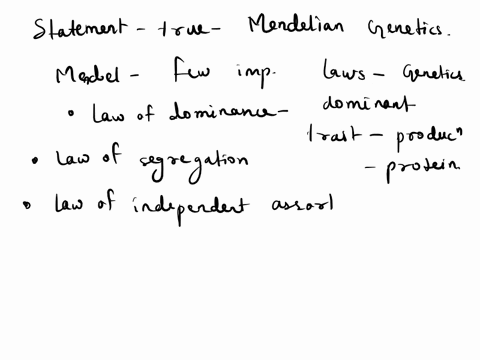 Statement - true - Mendelian Genetics.
Mendel - Few imp. laws - Genetics
• Law of dominance - dominant
trait - producⁿ
• Law of segregation
- protein.
• Law of independent assort